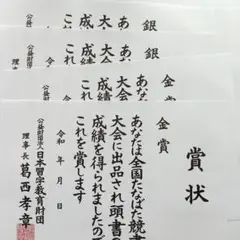 賞状
金賞
あなたは全国たなばた競書
大会に出品され頭書の
成績を得られましたので
これを賞します
令和 年 月 日
公益財団法人日本習字教育財団
理事長 葛西孝章
金賞
あな
大会
成績
これを
公益財
銀
あ
大会
成績
これ
公益財団
理事
銀
あ
大
成績
これ
公益